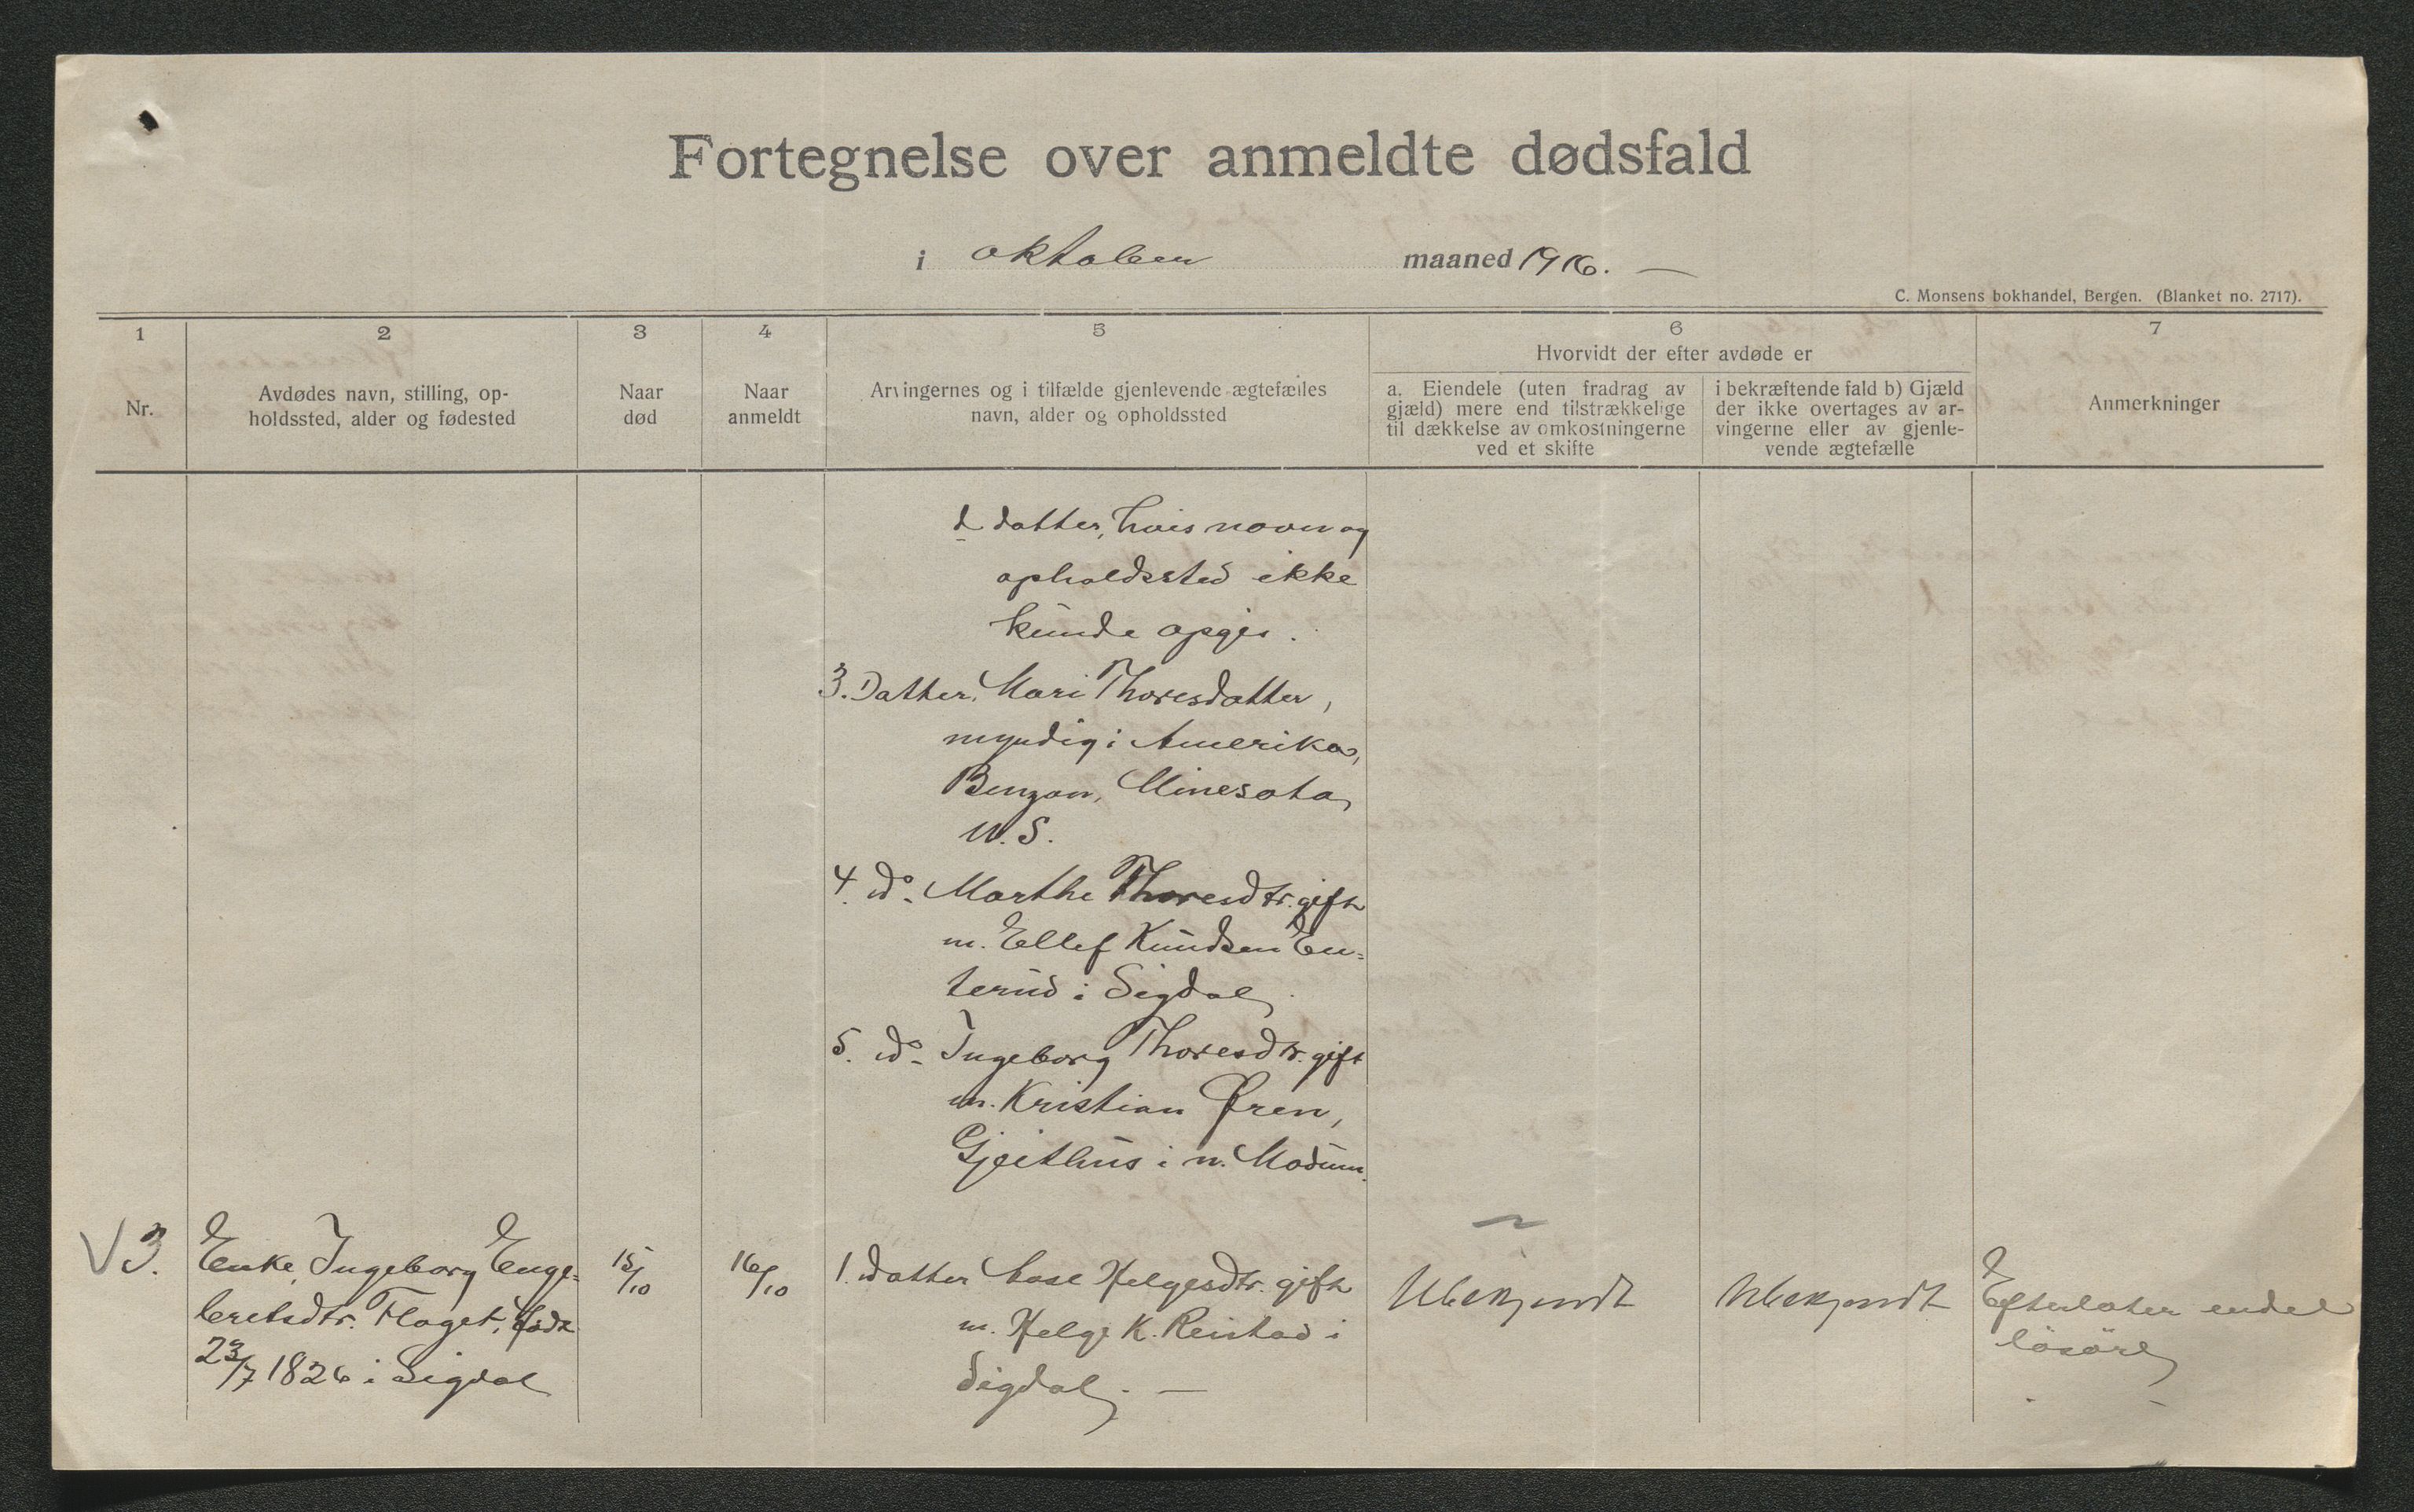 Fortegnelse over anmeldte dødsfald
i oktober maaned 1916. —
C. Monsens bokhandel, Bergen. (Blanket no. 2717).
1
Nr.
2
Avdødes navn, stilling, op-
holdssted, alder og fødested
3
Naar
død
4
Naar
anmeldt
5
Arvingernes og i tilfælde gjenlevende ægtefælles
navn, alder og opholdssted
6
Hvorvidt der efter avdøde er
a. Eiendele (uten fradrag av
gjæld) mere end tilstrækkelige
til dækkelse av omkostningerne
ved et skifte
i bekræftende fald b) Gjæld
der ikke overtages av ar-
vingerne eller av gjenle-
vende ægtefælle
7
Anmerkninger
d datter, hvis navn og
opholdssted ikke
kunde opgis.
3. Datter, Mari Thoresdatter,
myndig i Amerika,
Benzon, Minesota,
U.S.
4. do. Marthe Thoresdtr. gift
m. Ellef Knudsen En-
terud i Sigdal.
5. do. Ingeborg Thoresdtr. gift
m. Kristian Øren,
Gjeithus i n. Modum.
V 3.
Enke, Ingeborg Enge-
bretsdtr. Flaget, født
23/7 1826 i Sigdal
15/10
16/10
1. datter Aase Helgesdtr. gift
m. Helge K. Reistad i
Sigdal. —
Ubekjendt
Ubekjendt
Efterlater endel
løsøre